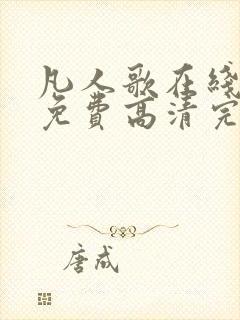 凡人歌在线
免费高清完
唐成